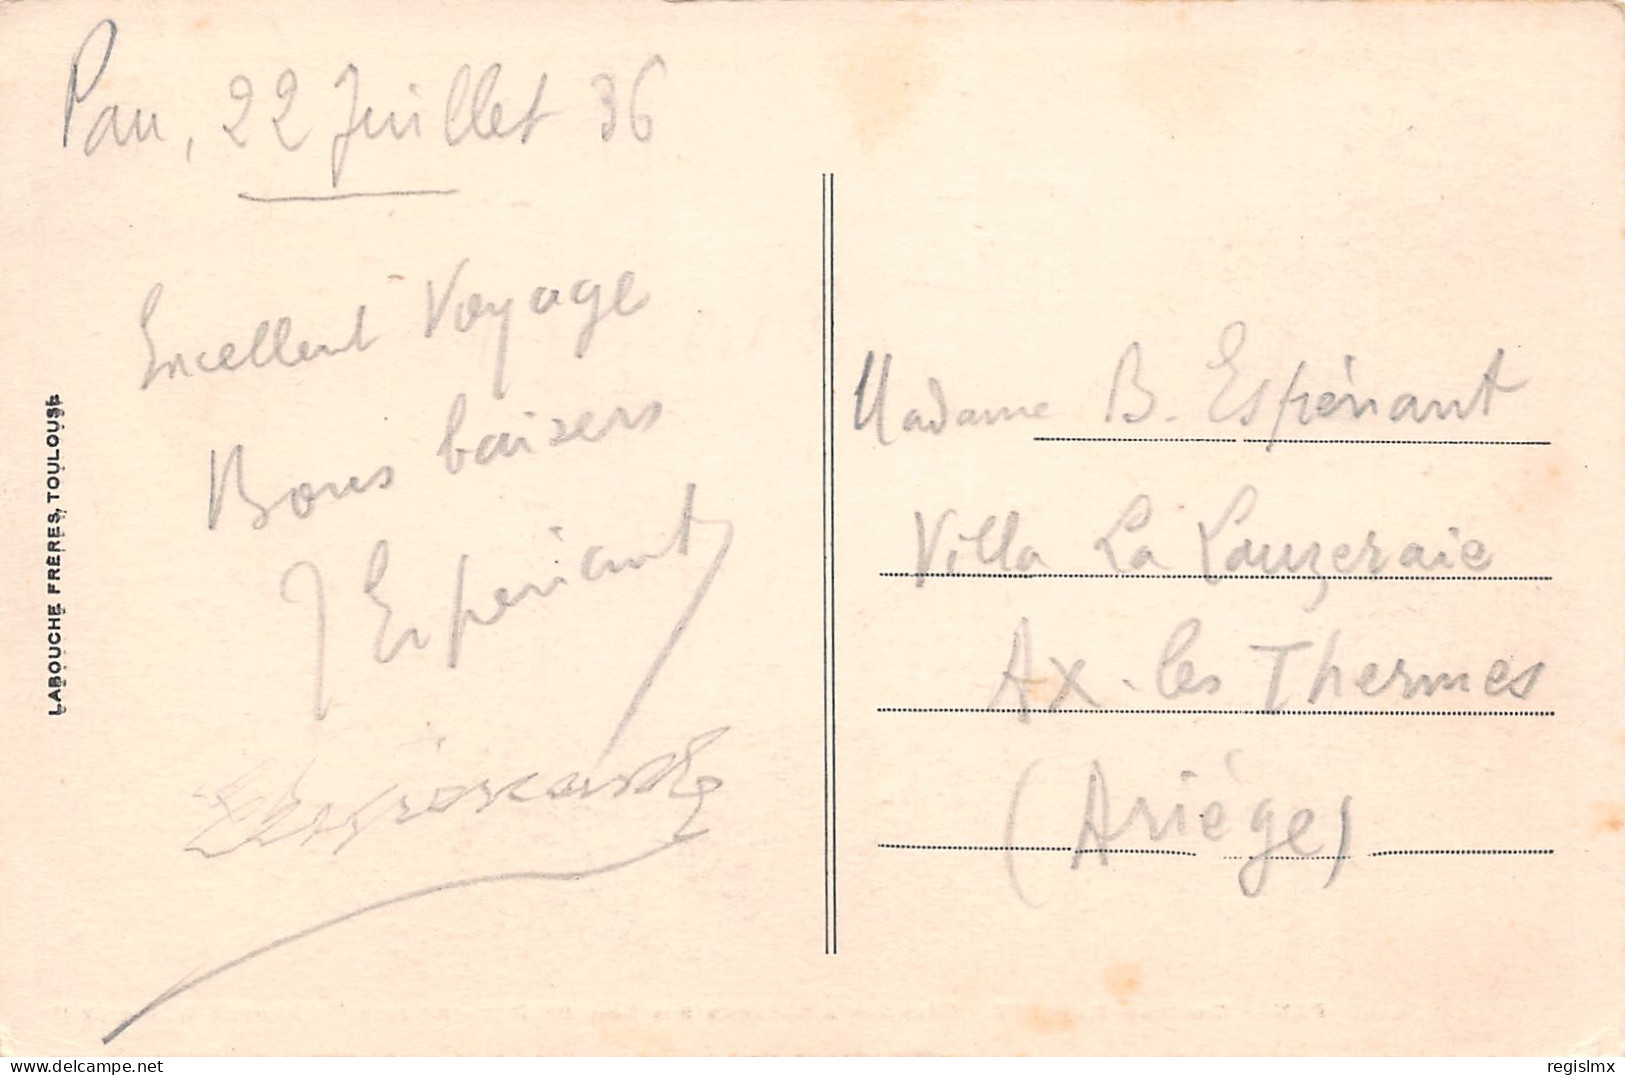 Pau, 22 Juillet 36
Excellent Voyage
Bons baisers
J Espénant
LABOUCHE FRÈRES, TOULOUSE
Madame B. Espénant
Villa La Lauzeraie
Ax-les Thermes
(Ariége)
regislmx